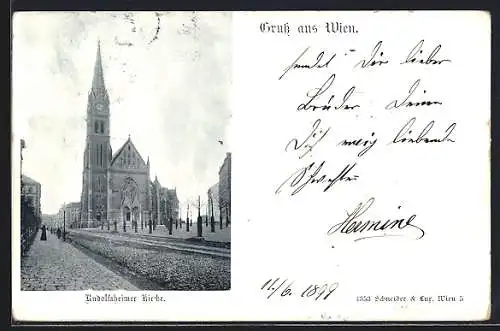 Gruß aus Wien.
sendet Dir lieber
Bruder Deine
Dich ewig liebende
Schwester
Hermine
11./6. 1899
Rudolfsheimer Kirche.
1353 Schneider & Lux, Wien 5